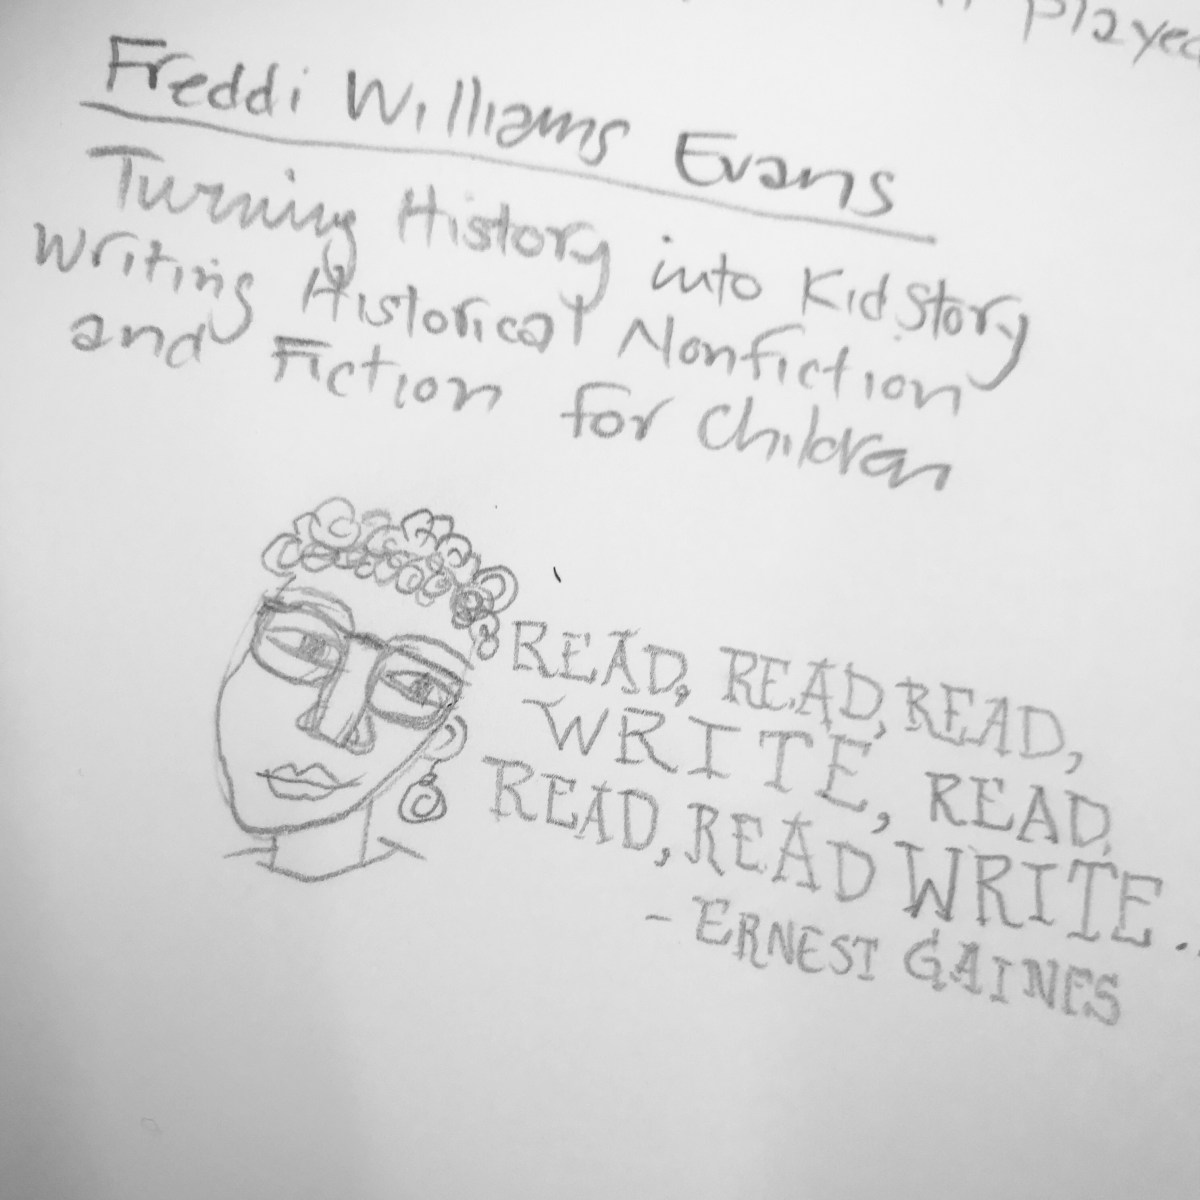 played
Freddi Williams Evans
Turning History into Kid Story
Writing Historical Nonfiction
and Fiction for Children
READ, READ, READ,
WRITE, READ,
READ, READ WRITE..
- ERNEST GAINES